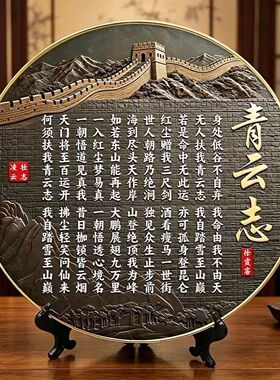 青云志
徐霞客
身处低谷不自弃 我命由我不由天
无人扶我青云志 我自踏雪至山巅
若是命中无此运 亦可孤身登昆仑
红尘赠我三尺剑 酒看瘦马一世街
世人朝路乃绝洞 独见众生止步前
海到尽头天作岸 山登绝顶我为峰
如若东山能再起 大鹏展翅九万里
一入红尘梦易真 一朝悟透心境名
一朝悟道见真我 昔日枷锁皆云烟
天门将至百运开 拂尘轻笑问仙来
何须扶我青云志 我自踏雪至山巅
壮志
凌云